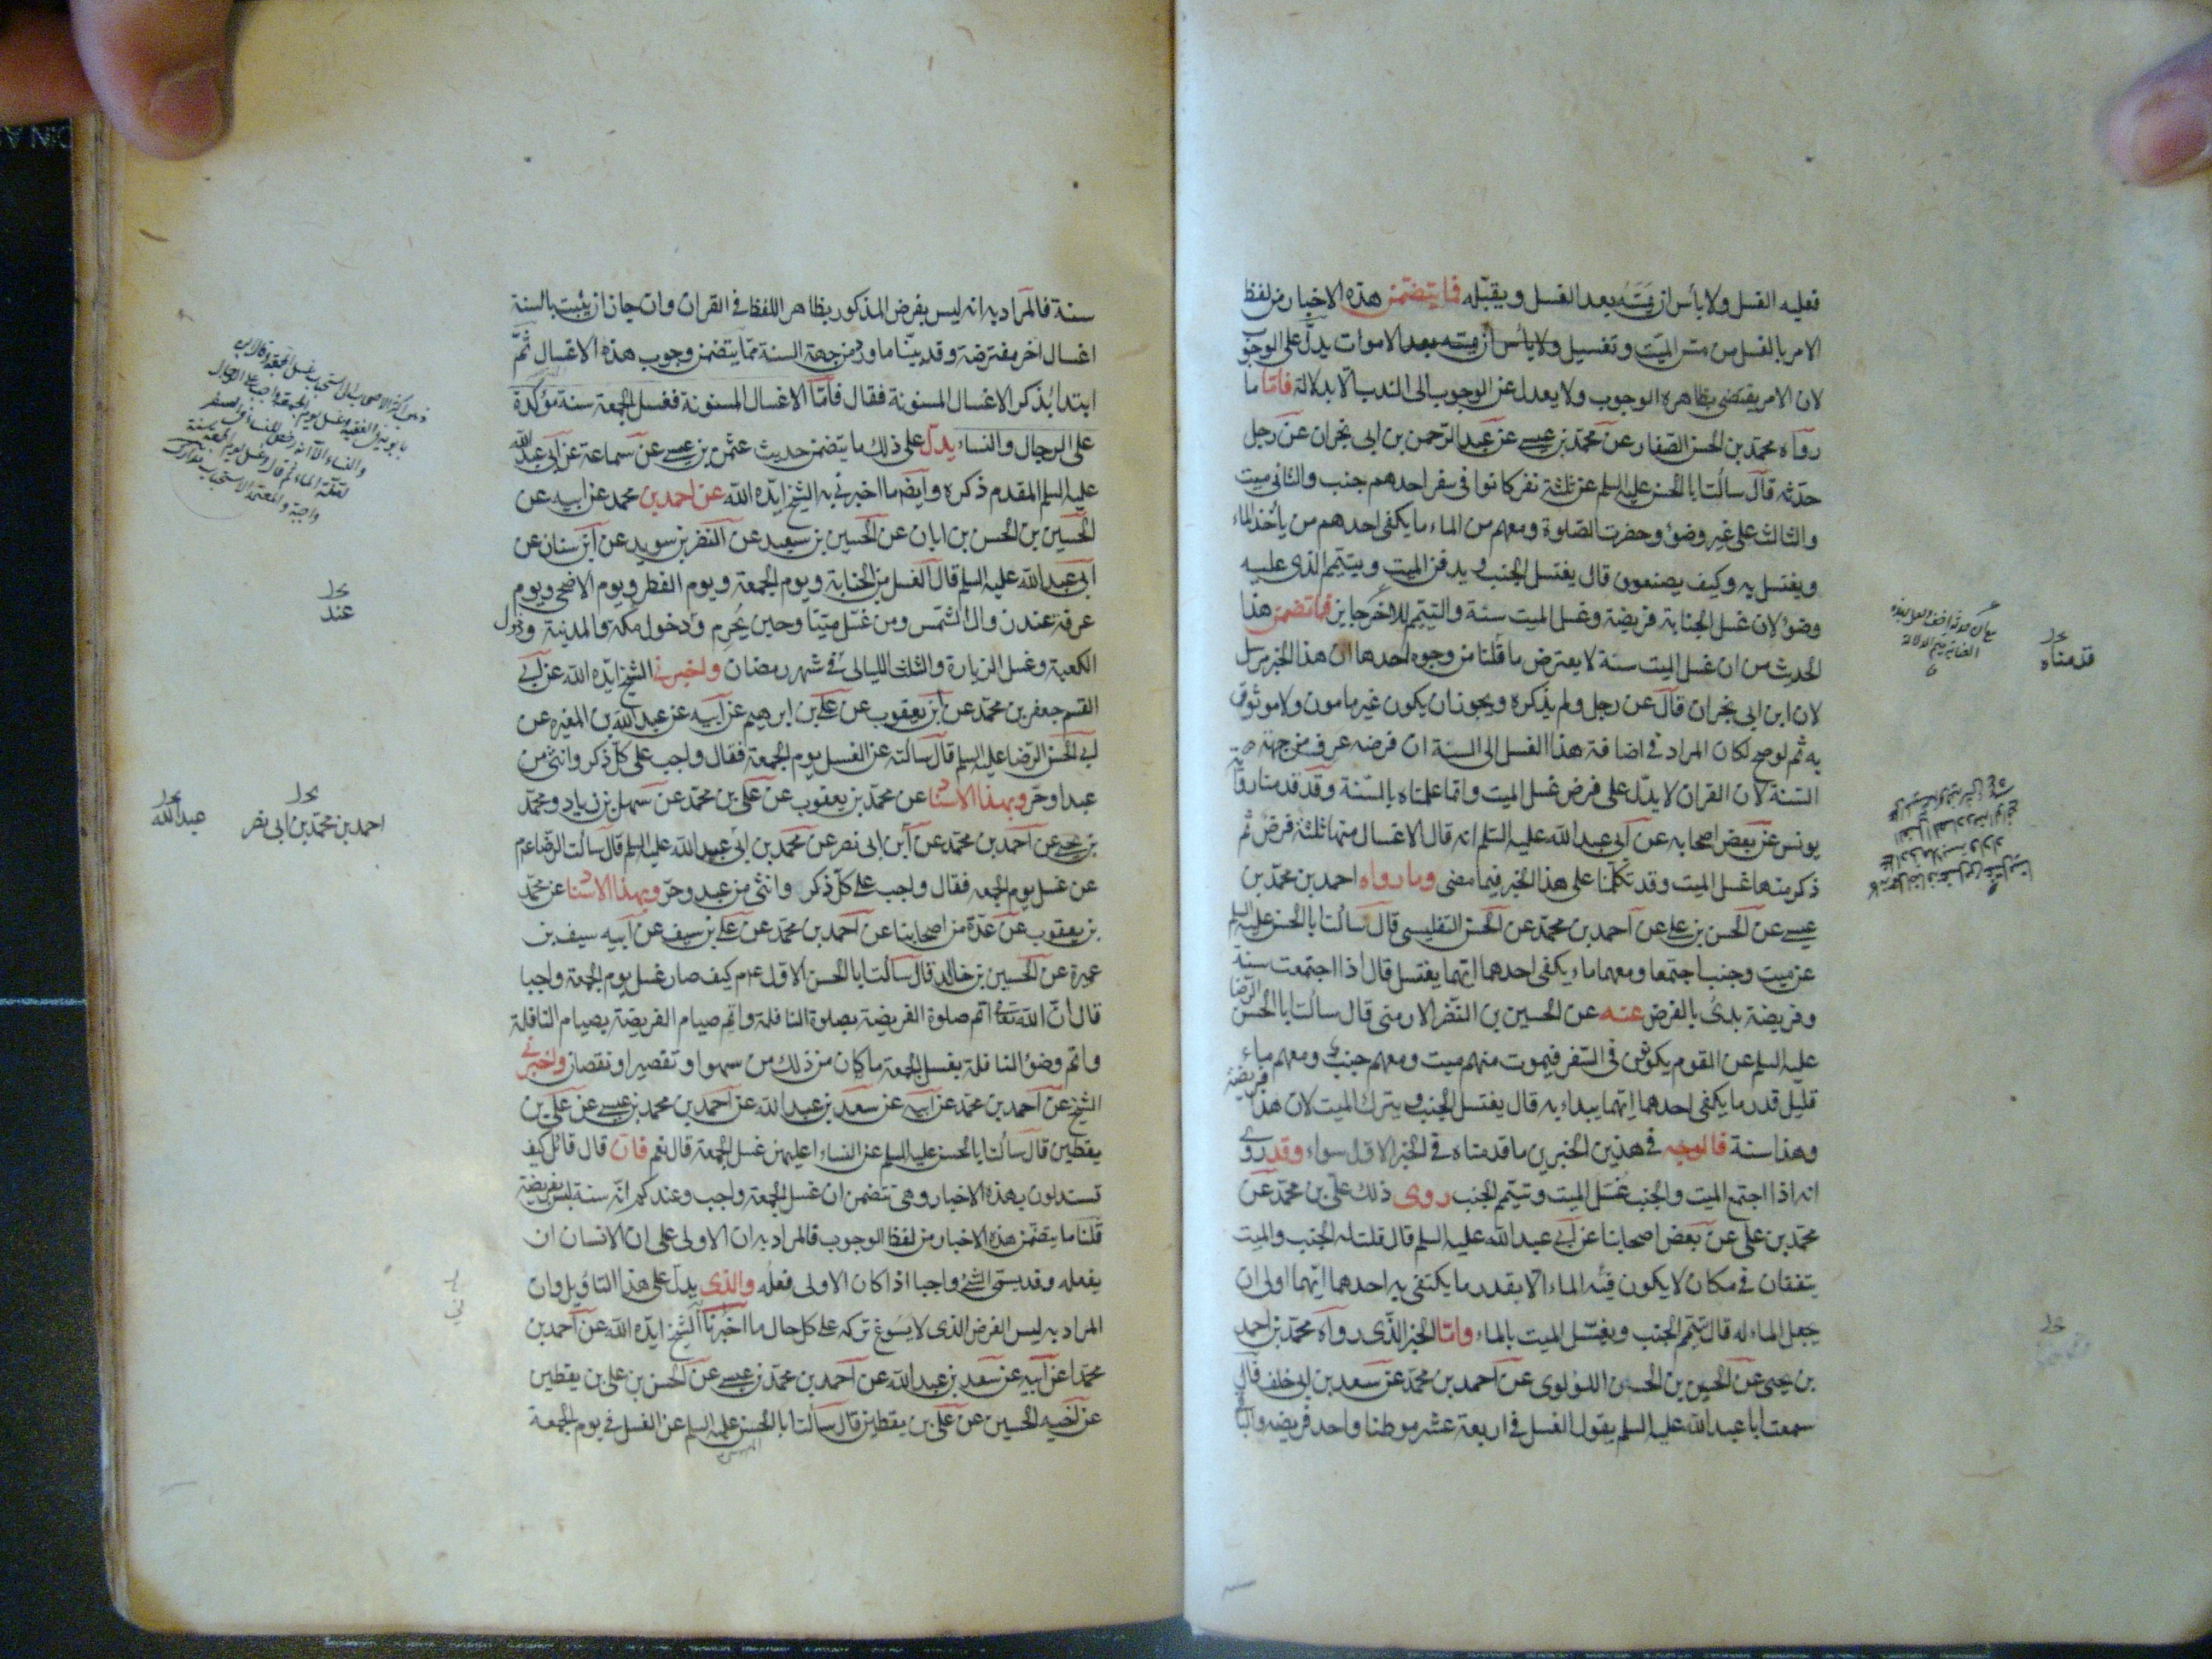 فعليه الغسل ولا بأس ان يمسّه بعد الغسل ويقبّله فما يتضمن هذه الاخبار من لفظ
الامر بالغسل من مسّ الميّت وتغسيل ولا بأس ان يمسه بعد الاموات يدلّ على الوجوب
لان الامر يقتضى بظاهره الوجوب ولا يعدل عن الوجوب الى الندب الّا بدلالة فامّا ما
رواه محمد بن الحسن الصفار عن محمد بن عيسى عن عبد الرّحمن بن ابى نجران عن رجل
حدّثه قال سألت ابا الحسن عليه السلم عن ثلثة نفر كانوا فى سفر احدهم جنب والثانى ميت
والثالث على غير وضوء وحضرت الصّلوة ومعهم من الماء ما يكفى احدهم من يأخذ الماء
ويغتسل به وكيف يصنعون قال يغتسل الجنب ويدفن الميت ويتيمم الذى عليه
وضوء لان غسل الجنابة فريضة وغسل الميت سنّة والتيمم للاخر جايز فما تضمن هذا
الحديث من ان غسل الميت سنة لا يعترض ما قلنا من وجوه احدها ان هذا الخبر مرسل
لان ابن ابى نجران قال عن رجل ولم يذكره ويجوز ان يكون غير مامون ولا موثوق
به ثم لو صح لكان المراد فى اضافة هذا الغسل الى السنة ان فرضه عرف من جهة
السّنة لان القران لا يدلّ على فرض غسل الميت وانما علمناه بالسّنة وقد قدمنا رواية
يونس عن بعض اصحابه عن ابى عبد الله عليه السّلم انه قال الاغسال منها ثلثة فرض ثم
ذكر منها غسل الميت وقد تكلّمنا على هذا الخبر فيما مضى وما رواه احمد بن محمد بن
عيسى عن الحسن بن على عن احمد بن محمد عن الحسن التفليسى قال سألت ابا الحسن عليه السلم
عن ميت وجنب اجتمعا ومعهما ماء يكفى احدهما ايّهما يغتسل قال اذا اجتمعت سنة
وفريضة بدئ بالفرض عنه عن الحسين بن النّضر الارمنى قال سألت ابا الحسن الرضا
عليه السلم عن القوم يكونون فى السّفر فيموت منهم ميت ومعهم جنب ومعهم ماء
قليل قدر ما يكفى احدهما ايّهما يبداء به قال يغتسل الجنب ويترك الميت لان هذا فريضة
وهذا سنة فالوجه فى هذين الخبرين ما قدمناه فى الخبر الاوّل سواء وقد روى
انه اذا اجتمع الميت والجنب غسّل الميت وتيمّم الجنب روى ذلك علىّ بن محمّد عن
محمّد بن على عن بعض اصحابنا عن ابى عبد الله عليه السلم قال قلت له الجنب والميت
يتفقان فى مكان لا يكون فيه الماء الّا بقدر ما يكتفى به احدهما ايّهما اولى ان
يجعل الماء له قال يتيمّم الجنب ويغسّل الميت بالماء وامّا الخبر الّذى رواه محمّد بن احمد
بن يحيى عن الحسين بن الحسن اللؤلوى عن احمد بن محمّد عن سعد بن ابى خلف قال
سمعت ابا عبد الله عليه السلم يقول الغسل فى اربعة عشر موطنا واحد فريضه والباقى
قدمناه
سنة فالمراد به انه ليس بفرض المذكور بظاهر اللفظ فى القران وان جاز ان يثبت بالسنة
اغسال اخر مفترضة وقد بيّنا ما ورد من جهة السنة ممّا يتضمن وجوب هذه الاغسال ثمّ
ابتدا بذكر الاغسال المسنونة فقال فامّا الاغسال المسنونة فغسل الجمعة سنة مؤكّدة
على الرجال والنساء يدلّ على ذلك ما يتضمن حديث عثمن بن عيسى عن سماعة عن ابى عبد الله
عليه السلم المقدم ذكره وايضا ما اخبرنى به الشيخ ايّده الله عن احمد بن محمد عن ابيه عن
الحسين بن الحسن بن ابان عن الحسين بن سعيد عن النضر بن سويد عن ابن سنان عن
ابى عبد الله عليه السلم قال الغسل من الجنابة ويوم الجمعة ويوم الفطر ويوم الاضحى ويوم
عرفة عند زوال الشّمس ومن غسّل ميّتا وحين يحرم ودخول مكّة والمدينة ودخول
الكعبة وغسل الزيارة والثلث الليالى فى شهر رمضان واخبرنى الشيخ ايّده الله عن ابى
القسم جعفر بن محمّد عن ابن يعقوب عن على بن ابرهيم عن ابيه عن عبد الله بن المغيره عن
ابى الحسن الرّضا عليه السلم قال سألته عن الغسل يوم الجمعة فقال واجب على كلّ ذكر وانثى من
عبد او حرّ وبهذا الاسناد عن محمّد بن يعقوب عن على بن محمّد عن سهل بن زياد ومحمّد
بن يحيى عن احمد بن محمّد عن ابن ابى نصر عن محمّد بن ابى عبد الله عليه السلم قال سألت الرّضا ع م
عن غسل يوم الجمعه فقال واجب على كلّ ذكر وانثى من عبد وحرّ وبهذا الاسناد عن محمّد
بن يعقوب عن عدّة من اصحابنا عن احمد بن محمّد عن على بن سيف عن ابيه سيف بن
عميرة عن الحسين بن خالد قال سألت ابا الحسن الاول ع م كيف صار غسل يوم الجمعة واجبا
قال انّ الله تعالى اتم صلوة الفريضة بصلوة النافلة واتم صيام الفريضة بصيام النافلة
واتم وضوء النافلة بغسل الجمعة ما كان من ذلك من سهو او تقصير او نقصان واخبرنى
الشيخ عن احمد بن محمّد عن ابيه عن سعد بن عبد الله عن احمد بن محمد بن عيسى عن على بن
يقطين قال سألت ابا الحسن عليه السلم عن النساء اعليهن غسل الجمعة قال نعم فان قال قائل كيف
تستدلون بهذه الاخبار وهى تتضمن ان غسل الجمعة واجب وعندكم انّه سنة ليس بفريضة
قلنا ما يتضمّن هذه الاخبار من لفظ الوجوب فالمراد به ان الاولى على ان الانسان ان
يفعله وقد يسمّى الشئ واجبا اذا كان الاولى فعله والذى يدلّ على هذا التاويل وان
المراد به ليس الفرض الذى لا يسوغ تركه على كل حال ما اخبرنا الشيخ ايّده الله عن احمد بن
محمّد عن ابيه عن سعد بن عبد الله عن احمد بن محمّد بن عيسى عن الحسن بن على بن يقطين
عن اخيه الحسين عن على بن يقطين قال سألت ابا الحسن عليه السلم عن الغسل فى يوم الجمعة
عند
احمد بن محمّد بن ابى نصر
عبد الله